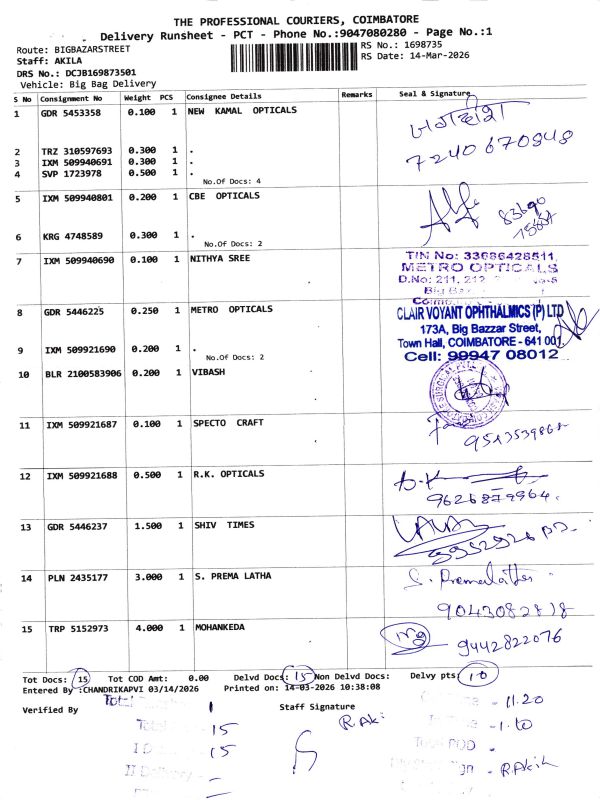 THE PROFESSIONAL COURIERS, COIMBATORE
Delivery Runsheet - PCT - Phone No.:9047080280 - Page No.:1
Route: BIGBAZARSTREET
RS No.: 1698735
Staff: AKILA
RS Date: 14-Mar-2026
DRS No.: DCJB169873501
Vehicle: Big Bag Delivery
S No Consignment No Weight PCS Consignee Details Remarks Seal & Signature
1 GDR 5453358 0.100 1 NEW KAMAL OPTICALS
7240670848
2 TRZ 310597693 0.300 1 .
3 IXM 509940691 0.300 1 .
4 SVP 1723978 0.500 1 .
No.Of Docs: 4
5 IXM 509940801 0.200 1 CBE OPTICALS
6 KRG 4748589 0.300 1 .
No.Of Docs: 2
7 IXM 509940690 0.100 1 NITHYA SREE
TIN No: 33686428511,
METRO OPTICALS
D.No: 211, 212
8 GDR 5446225 0.250 1 METRO OPTICALS
CLAIR VOYANT OPHTHALMICS (P) LTD
173A, Big Bazzar Street,
Town Hall, COIMBATORE - 641 001.
Cell: 99947 08012
9 IXM 509921690 0.200 1 .
No.Of Docs: 2
10 BLR 2100583906 0.200 1 VIBASH
11 IXM 509921687 0.100 1 SPECTO CRAFT
12 IXM 509921688 0.500 1 R.K. OPTICALS
13 GDR 5446237 1.500 1 SHIV TIMES
14 PLN 2435177 3.000 1 S. PREMA LATHA
S. Premalatha
9043082818
15 TRP 5152973 4.000 1 MOHANKEDA
9442822076
Tot Docs: 15 Tot COD Amt: 0.00 Delvd Docs: 15 Non Delvd Docs: Delvy pts: 10
Entered By :CHANDRIKAPVI 03/14/2026 Printed on: 14-03-2026 10:38:08
Verified By Staff Signature
- 11.20
15
R.Aki
- 1.10
15
- R.Akila